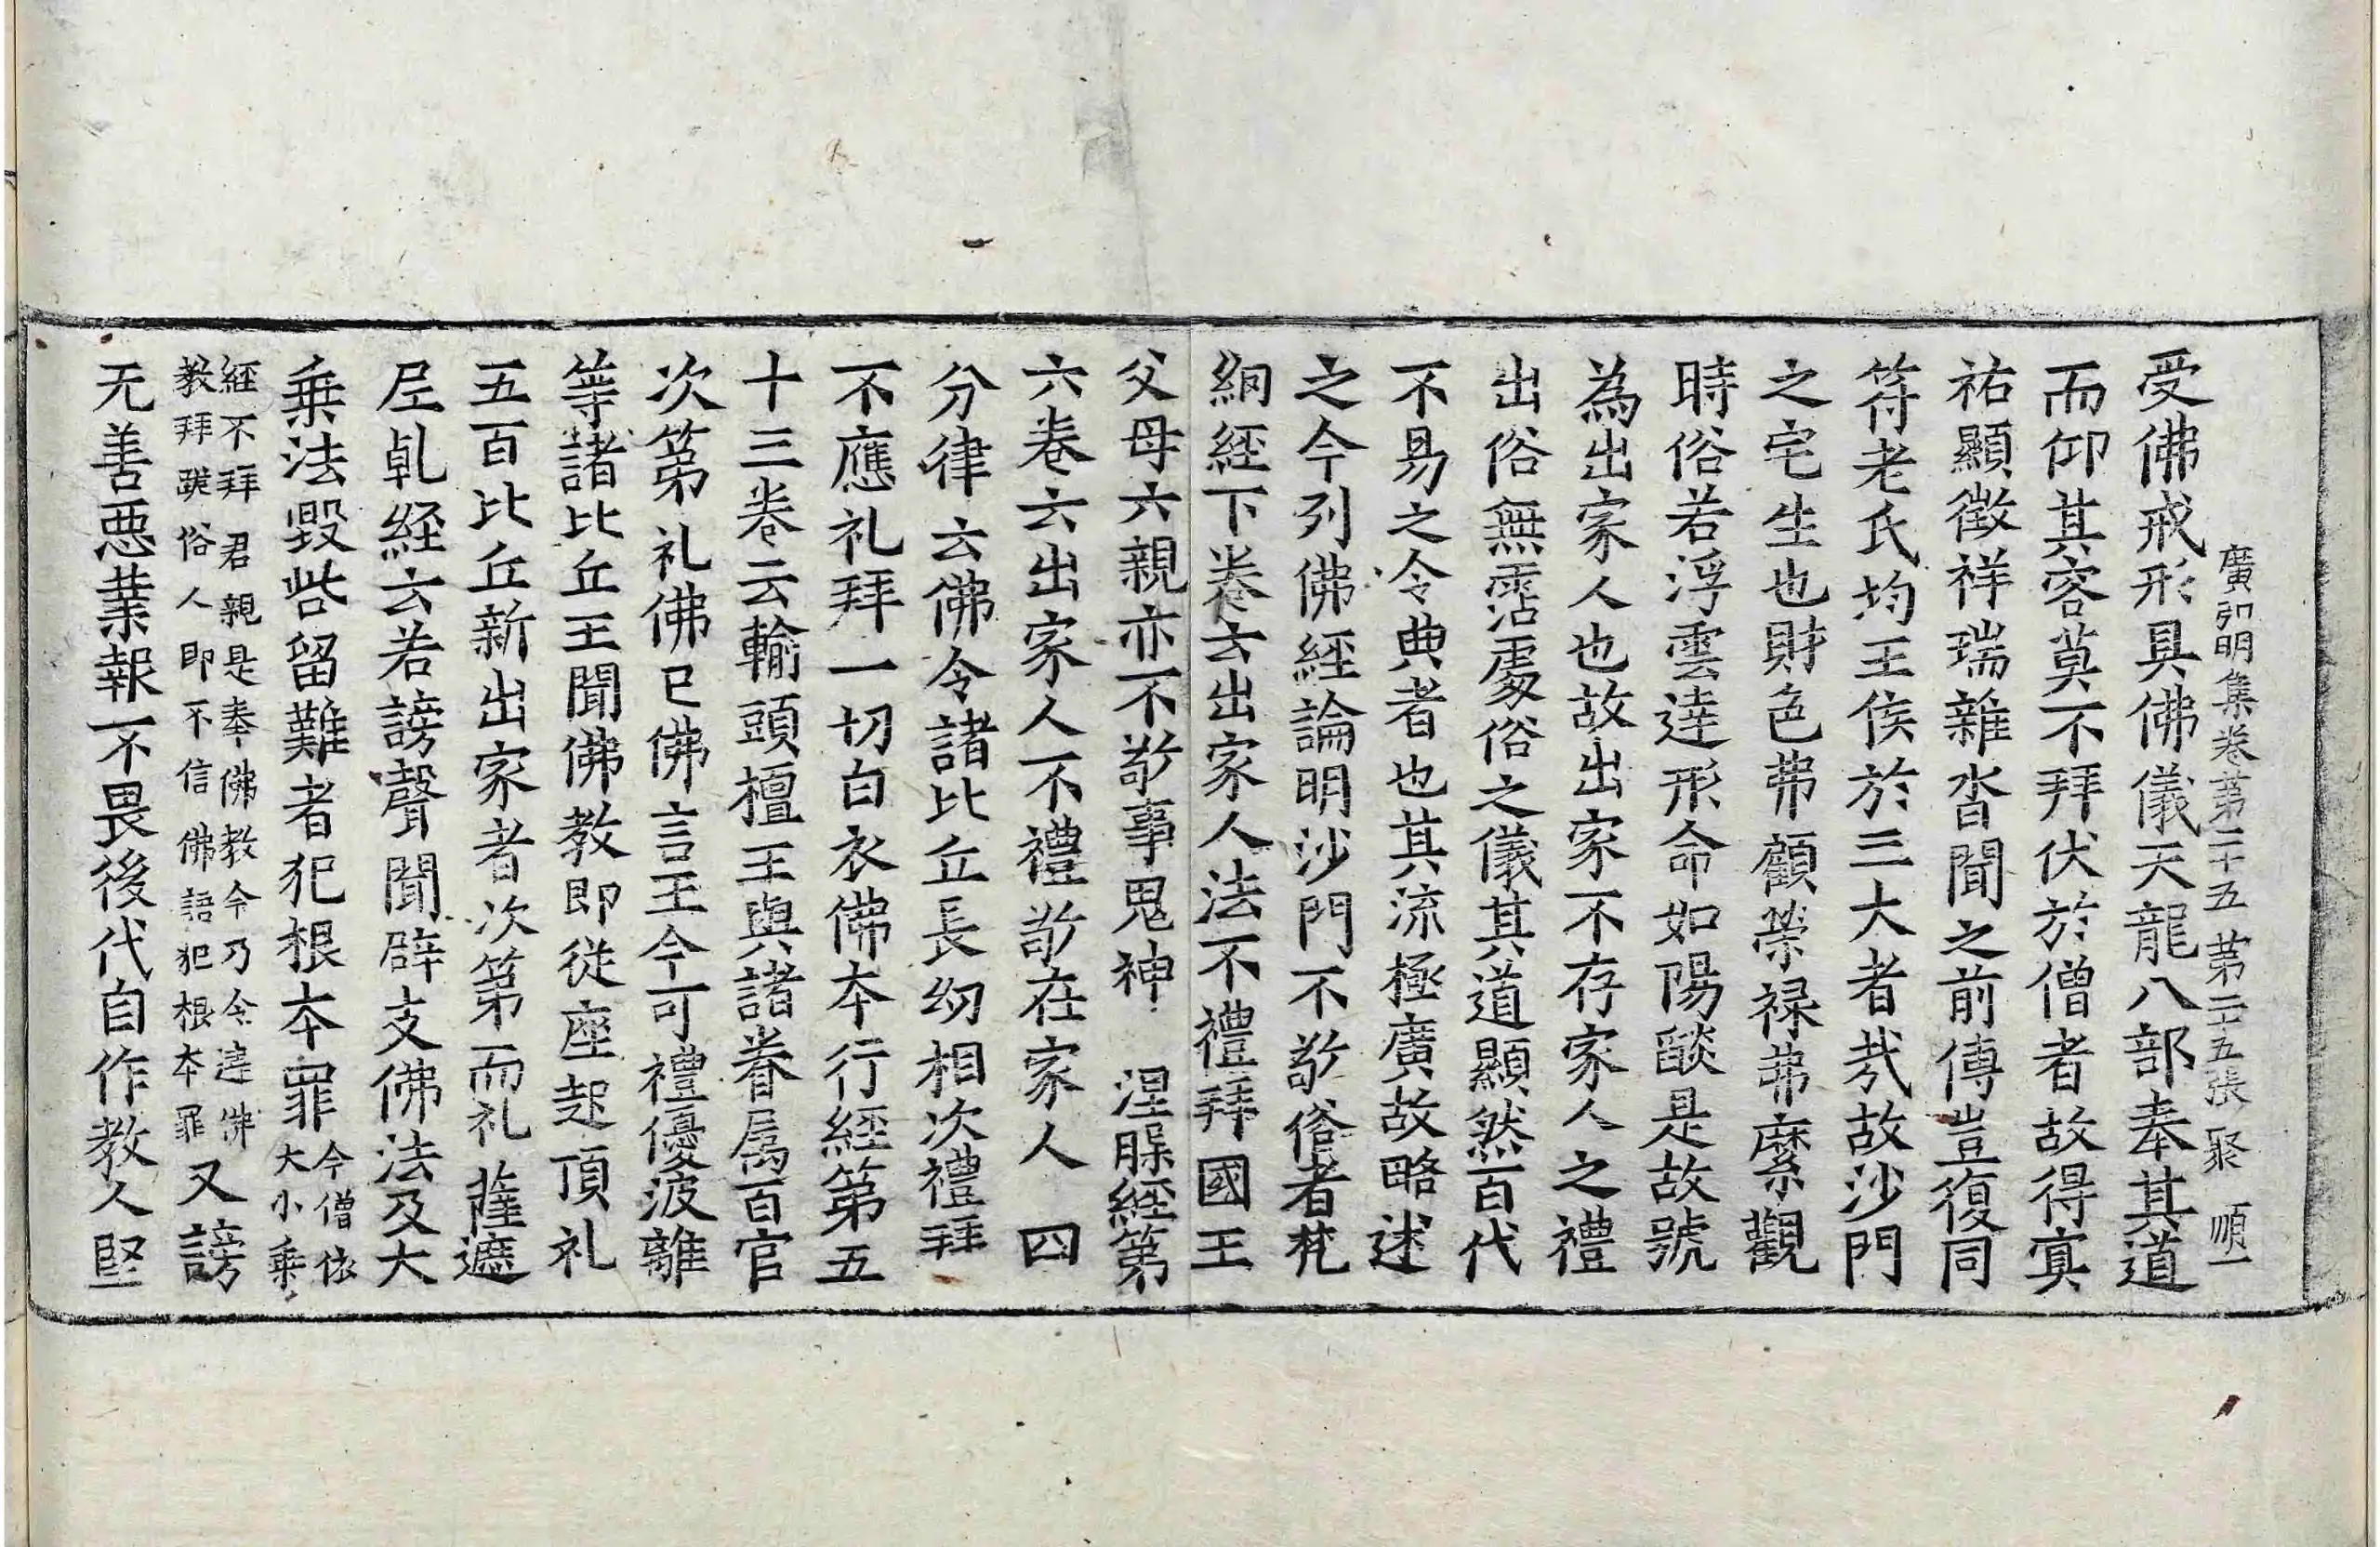 廣弘明集卷第二十五 第二五張 聚 順一
受佛戒形具佛儀天龍八部奉其道
而仰其容莫不拜伏於僧者故得寘
祐顯徵祥瑞雜沓聞之前傳豈復同
符老氏均王侯於三大者㢤故沙門
之宅生也財色弗顧榮禄弗縻觀
時俗若浮雲達形命如陽燄是故號
為出家人也故出家不存家人之禮
出俗無霑處俗之儀其道顯然百代
不易之令典者也其流極廣故略述
之今列佛經論明沙門不敬俗者梵
網経下卷云出家人法不禮拜國王
父母六親亦不敬事鬼神 涅槃経第
六卷云出家人不禮敬在家人 四
分律云佛令諸比丘長幼相次禮拜
不應礼拜一切白衣佛本行経第五
十三卷云輸頭檀王與諸眷属百官
次第礼佛已佛言王今可禮優波離
等諸比丘王聞佛教即從座起頂礼
五百比丘新出家者次第而礼薩遮
尼乹経云若謗聲聞辟支佛法及大
乗法毀呰留難者犯根本罪今僧依大小乗
経不拜君親是奉佛教今乃令違佛教拜跪俗人即不信佛語犯根本罪又謗
无善悪業報不畏後代自作教人堅